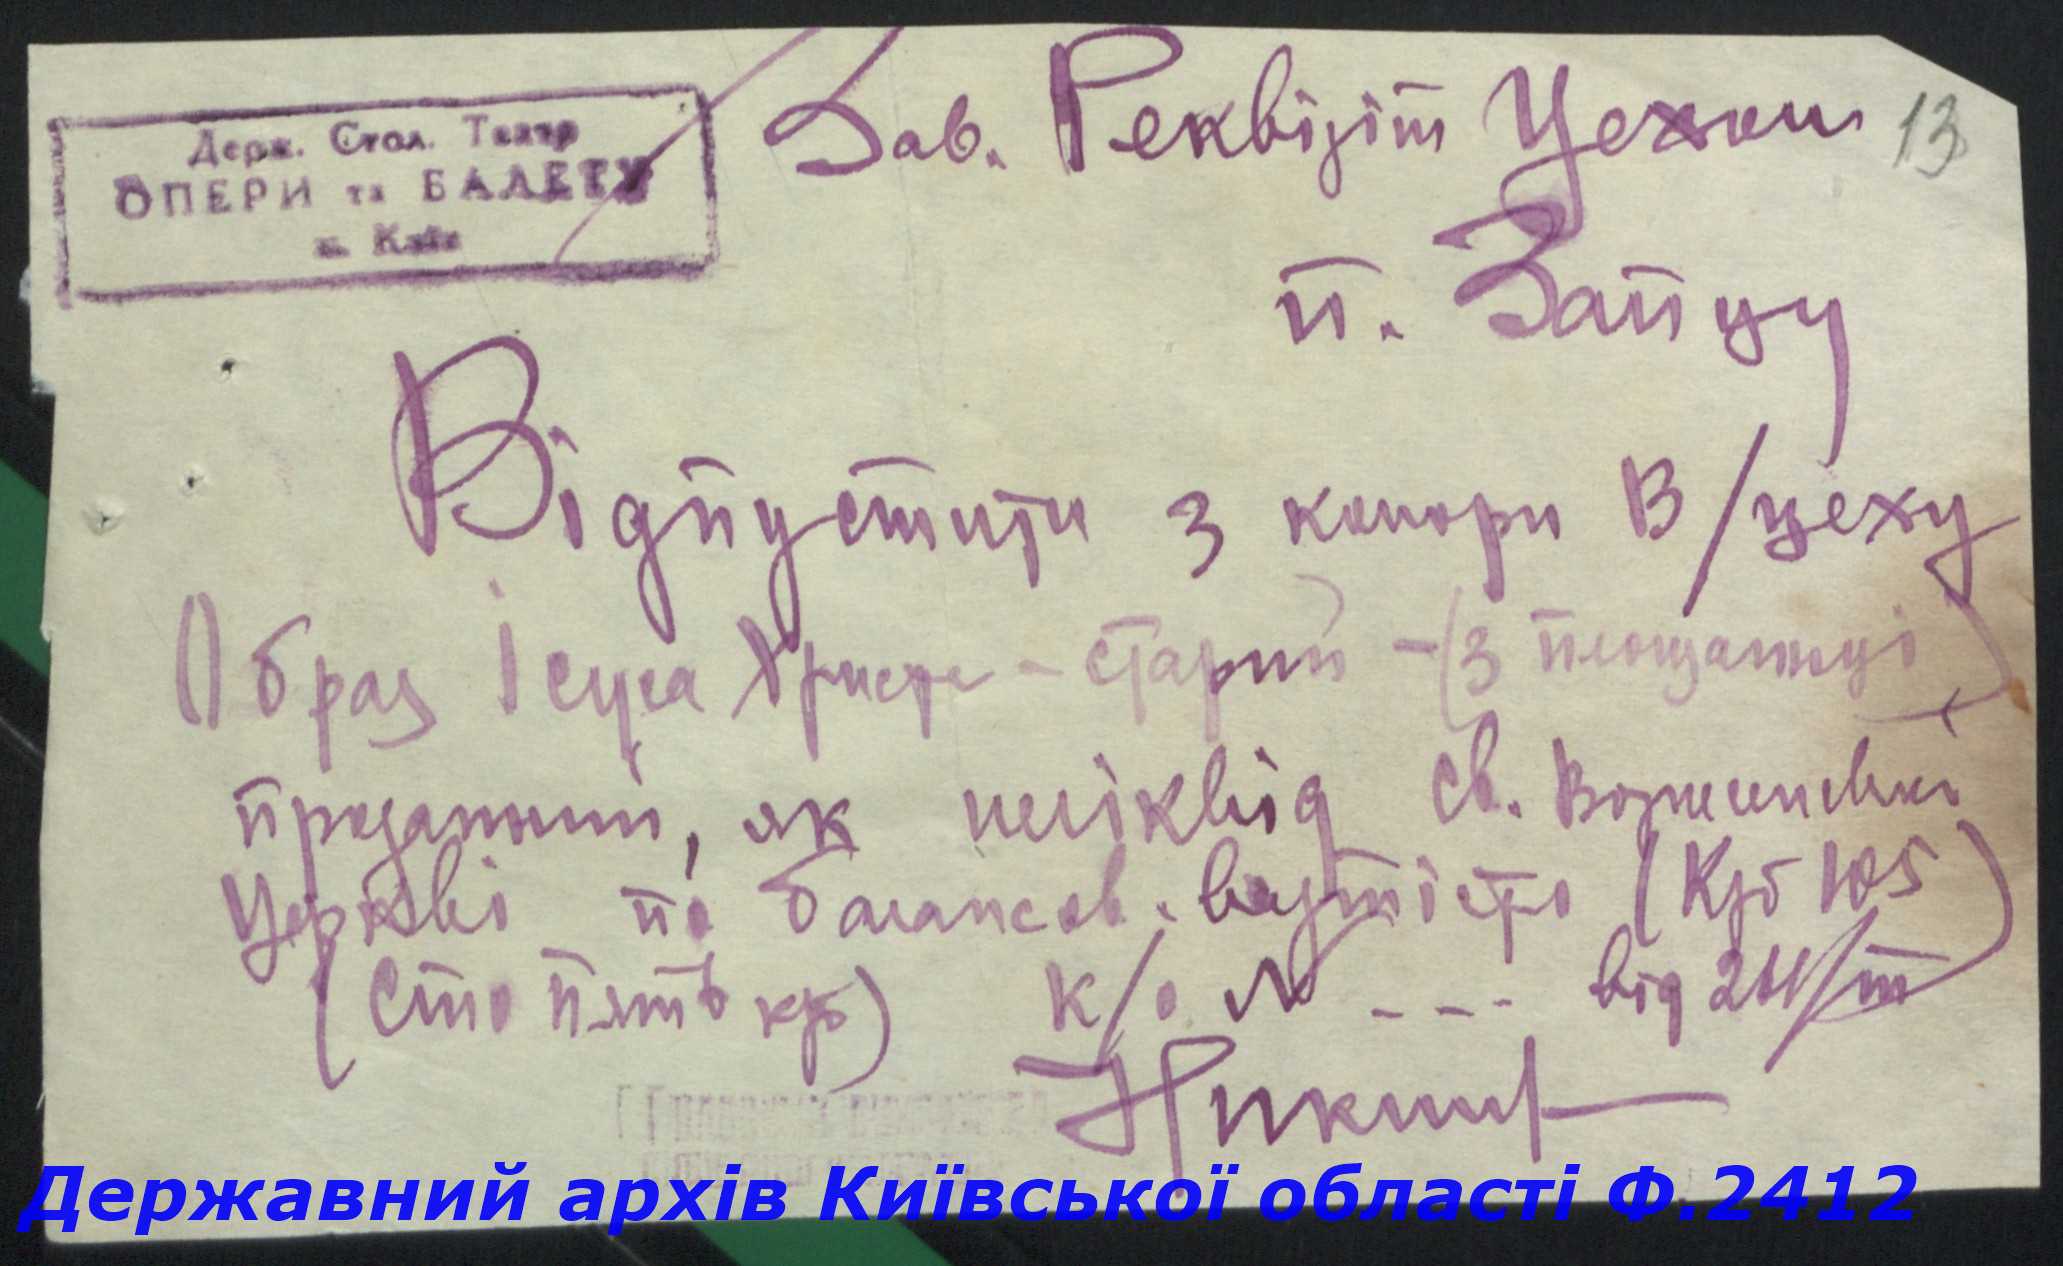 Держ. Стол. Театр
ОПЕРИ та БАЛЕТУ
м. Київ
Зав. Реквізіт Цехом
13
п. Запцу
Відпустити з комори В/цеху
Образ Ісуса Христа - старий - (з площаниці)
проданий, як неліквід св. Вознесенській
Церкві по балансов. вартістю (Крб 105
(Сто пять крб) к/о № --- від 24/ІІІ)
Державний архів Київської області Ф.2412